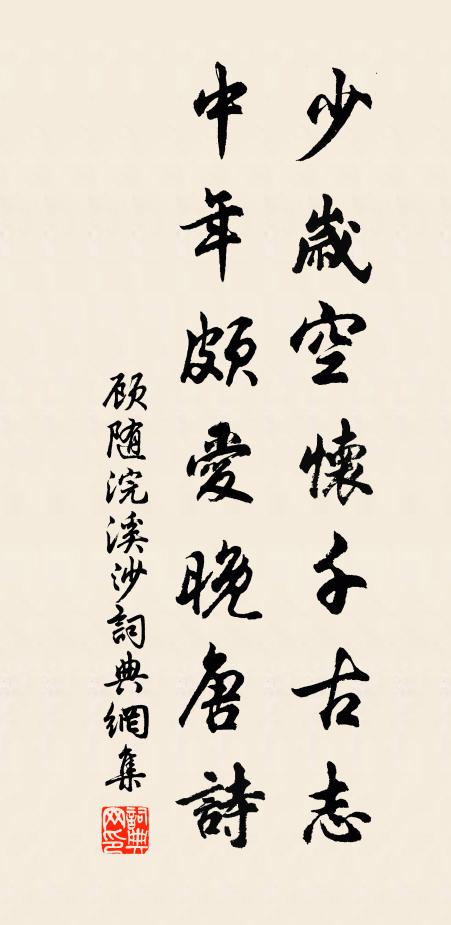 少歲空懷千古志
中年頗愛晚唐詩
顾随浣溪沙詞典網集
詞典网印